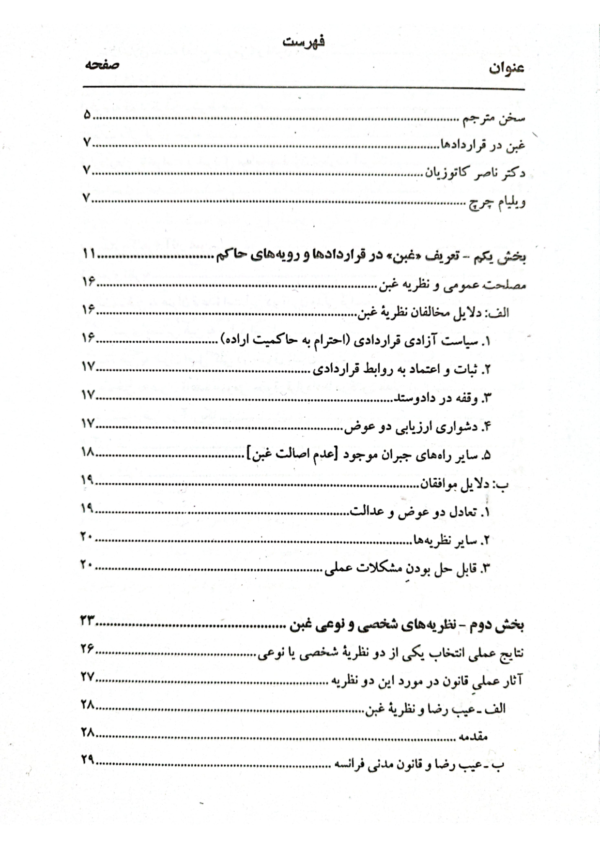 فهرست
عنوان صفحه
سخن مترجم ........ ۵
غبن در قراردادها ........ ۷
دکتر ناصر کاتوزیان ........ ۷
ویلیام چرچ ........ ۷
بخش یکم - تعریف «غبن» در قراردادها و رویه‌های حاکم ........ ۱۱
مصلحت عمومی و نظریه غبن ........ ۱۶
الف: دلایل مخالفان نظریهٔ غبن ........ ۱۶
۱. سیاست آزادی قراردادی (احترام به حاکمیت اراده) ........ ۱۶
۲. ثبات و اعتماد به روابط قراردادی ........ ۱۷
۳. وقفه در دادوستد ........ ۱۷
۴. دشواری ارزیابی دو عوض ........ ۱۷
۵. سایر راه‌های جبران موجود [عدم اصالت غبن] ........ ۱۸
ب: دلایل موافقان ........ ۱۹
۱. تعادل دو عوض و عدالت ........ ۱۹
۲. سایر نظریه‌ها ........ ۲۰
۳. قابل حل بودنِ مشکلات عملی ........ ۲۰
بخش دوم - نظریه‌های شخصی و نوعی غبن ........ ۲۳
نتایج عملی انتخاب یکی از دو نظریهٔ شخصی یا نوعی ........ ۲۶
آثار عملیِ قانون در مورد این دو نظریه ........ ۲۷
الف ـ عیب رضا و نظریهٔ غبن ........ ۲۸
مقدمه ........ ۲۸
ب ـ عیب رضا و قانون مدنی فرانسه ........ ۲۹